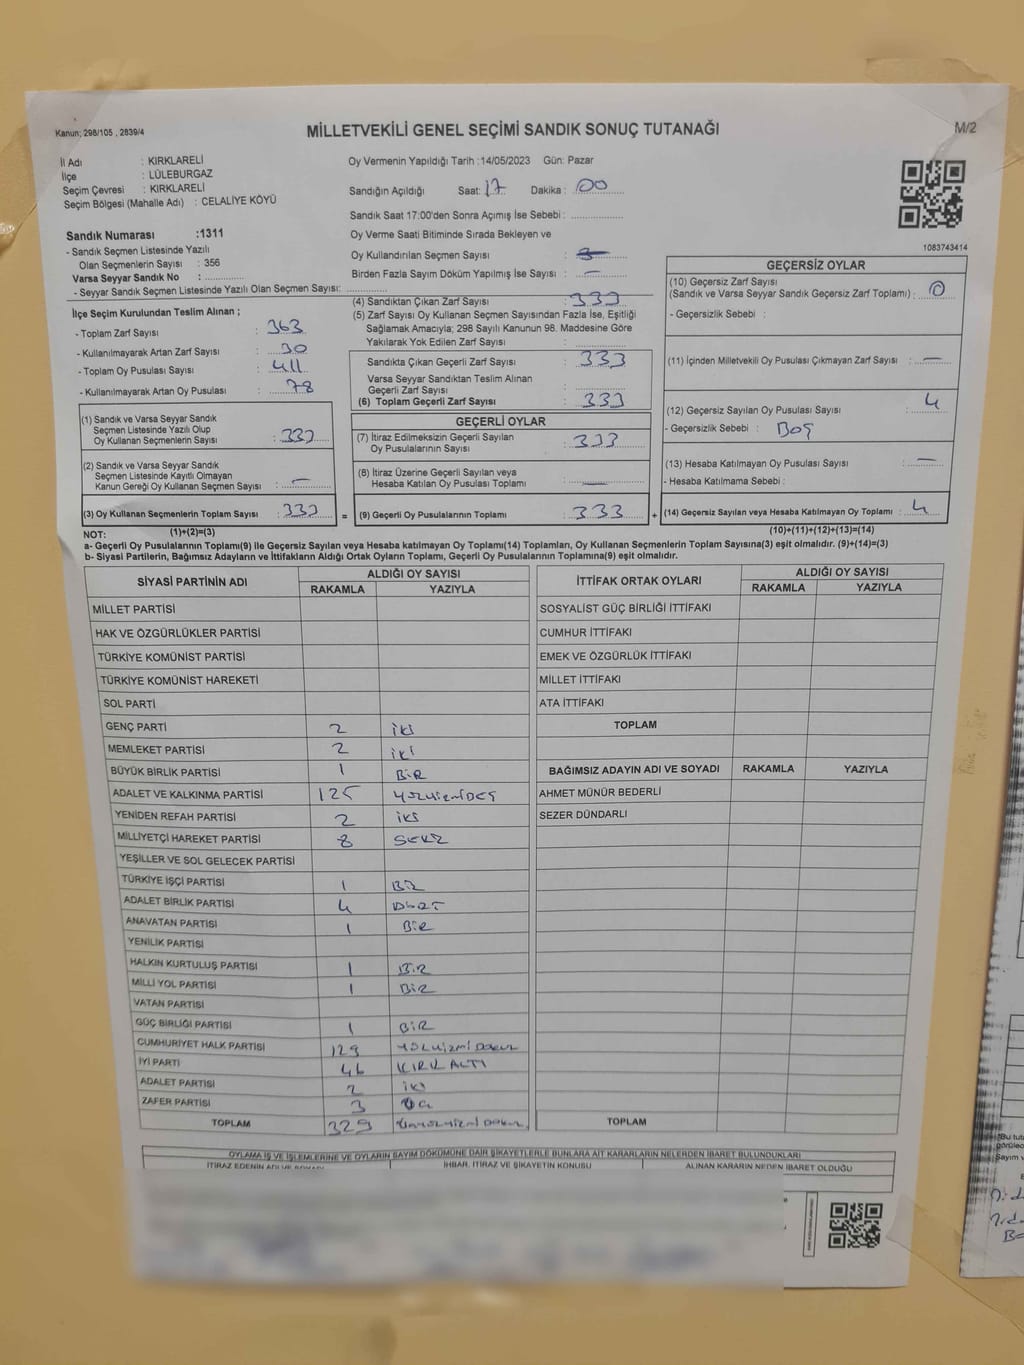 Kanun; 298/105 , 2839/4
MİLLETVEKİLİ GENEL SEÇİMİ SANDIK SONUÇ TUTANAĞI
M/2
İl Adı : KIRKLARELİ
İlçe : LÜLEBURGAZ
Seçim Çevresi : KIRKLARELİ
Seçim Bölgesi (Mahalle Adı) : CELALİYE KÖYÜ
Sandık Numarası :1311
- Sandık Seçmen Listesinde Yazılı
Olan Seçmenlerin Sayısı : 356
Varsa Seyyar Sandık No :
- Seyyar Sandık Seçmen Listesinde Yazılı Olan Seçmen Sayısı:
Oy Vermenin Yapıldığı Tarih :14/05/2023 Gün: Pazar
Sandığın Açıldığı Saat: 17 Dakika : 00
Sandık Saat 17:00'den Sonra Açımış İse Sebebi :
Oy Verme Saati Bitiminde Sırada Bekleyen ve
Oy Kullandırılan Seçmen Sayısı :
Birden Fazla Sayım Döküm Yapılmış İse Sayısı : —
1083743414
İlçe Seçim Kurulundan Teslim Alınan ;
- Toplam Zarf Sayısı : 363
- Kullanılmayarak Artan Zarf Sayısı : 30
- Toplam Oy Pusulası Sayısı : 411
- Kullanılmayarak Artan Oy Pusulası : 78
(1) Sandık ve Varsa Seyyar Sandık
Seçmen Listesinde Yazılı Olup
Oy Kullanan Seçmenlerin Sayısı : 333
(2) Sandık ve Varsa Seyyar Sandık
Seçmen Listesinde Kayıtlı Olmayan
Kanun Gereği Oy Kullanan Seçmen Sayısı : —
(3) Oy Kullanan Seçmenlerin Toplam Sayısı : 333 =
(4) Sandıktan Çıkan Zarf Sayısı : 333
(5) Zarf Sayısı Oy Kullanan Seçmen Sayısından Fazla İse, Eşitliği
Sağlamak Amacıyla; 298 Sayılı Kanunun 98. Maddesine Göre
Yakılarak Yok Edilen Zarf Sayısı :
Sandıkta Çıkan Geçerli Zarf Sayısı : 333
Varsa Seyyar Sandıktan Teslim Alınan
Geçerli Zarf Sayısı :
(6) Toplam Geçerli Zarf Sayısı : 333
GEÇERLİ OYLAR
(7) İtiraz Edilmeksizin Geçerli Sayılan
Oy Pusulalarının Sayısı : 333
(8) İtiraz Üzerine Geçerli Sayılan veya
Hesaba Katılan Oy Pusulası Toplamı : —
(9) Geçerli Oy Pusulalarının Toplamı : 333 +
GEÇERSİZ OYLAR
(10) Geçersiz Zarf Sayısı
(Sandık ve Varsa Seyyar Sandık Geçersiz Zarf Toplamı) : 0
- Geçersizlik Sebebi :
(11) İçinden Milletvekili Oy Pusulası Çıkmayan Zarf Sayısı : —
(12) Geçersiz Sayılan Oy Pusulası Sayısı : 4
- Geçersizlik Sebebi : BOŞ
(13) Hesaba Katılmayan Oy Pusulası Sayısı : —
- Hesaba Katılmama Sebebi :
(14) Geçersiz Sayılan veya Hesaba Katılmayan Oy Toplamı : 4
NOT: (1)+(2)=(3) (10)+(11)+(12)+(13)=(14)
a- Geçerli Oy Pusulalarının Toplamı(9) ile Geçersiz Sayılan veya Hesaba katılmayan Oy Toplamı(14) Toplamları, Oy Kullanan Seçmenlerin Toplam Sayısına(3) eşit olmalıdır. (9)+(14)=(3)
b- Siyasi Partilerin, Bağımsız Adayların ve İttifakların Aldığı Ortak Oyların Toplamı, Geçerli Oy Pusulalarının Toplamına(9) eşit olmalıdır.
SİYASİ PARTİNİN ADI ALDIĞI OY SAYISI
RAKAMLA YAZIYLA
MİLLET PARTİSİ
HAK VE ÖZGÜRLÜKLER PARTİSİ
TÜRKİYE KOMÜNİST PARTİSİ
TÜRKİYE KOMÜNİST HAREKETİ
SOL PARTİ
GENÇ PARTİ 2 iki
MEMLEKET PARTİSİ 2 iki
BÜYÜK BİRLİK PARTİSİ 1 BiR
ADALET VE KALKINMA PARTİSİ 125 YÜZYİRMİBEŞ
YENİDEN REFAH PARTİSİ 2 iki
MİLLİYETÇİ HAREKET PARTİSİ 8 SEKİZ
YEŞİLLER VE SOL GELECEK PARTİSİ
TÜRKİYE İŞÇİ PARTİSİ 1 BiR
ADALET BİRLİK PARTİSİ 4 DÖRT
ANAVATAN PARTİSİ 1 BiR
YENİLİK PARTİSİ
HALKIN KURTULUŞ PARTİSİ 1 BiR
MİLLİ YOL PARTİSİ 1 BiR
VATAN PARTİSİ
GÜÇ BİRLİĞİ PARTİSİ 1 BiR
CUMHURİYET HALK PARTİSİ 129 YÜZYİRMİ DOKUZ
İYİ PARTİ 46 KIRK ALTI
ADALET PARTİSİ 2 iki
ZAFER PARTİSİ 3 Üç
TOPLAM 329 ÜÇYÜZYİRMİ DOKUZ
İTTİFAK ORTAK OYLARI ALDIĞI OY SAYISI
RAKAMLA YAZIYLA
SOSYALİST GÜÇ BİRLİĞİ İTTİFAKI
CUMHUR İTTİFAKI
EMEK VE ÖZGÜRLÜK İTTİFAKI
MİLLET İTTİFAKI
ATA İTTİFAKI
TOPLAM
BAĞIMSIZ ADAYIN ADI VE SOYADI RAKAMLA YAZIYLA
AHMET MÜNÜR BEDERLİ
SEZER DÜNDARLI
TOPLAM
OYLAMA İŞ VE İŞLEMLERİNE VE OYLARIN SAYIM DÖKÜMÜNE DAİR ŞİKAYETLERLE BUNLARA AİT KARARLARIN NELERDEN İBARET BULUNDUKLARI
İTİRAZ EDENİN ADI VE SOYADI İHBAR, İTİRAZ VE ŞİKAYETİN KONUSU ALINAN KARARIN NEDEN İBARET OLDUĞU